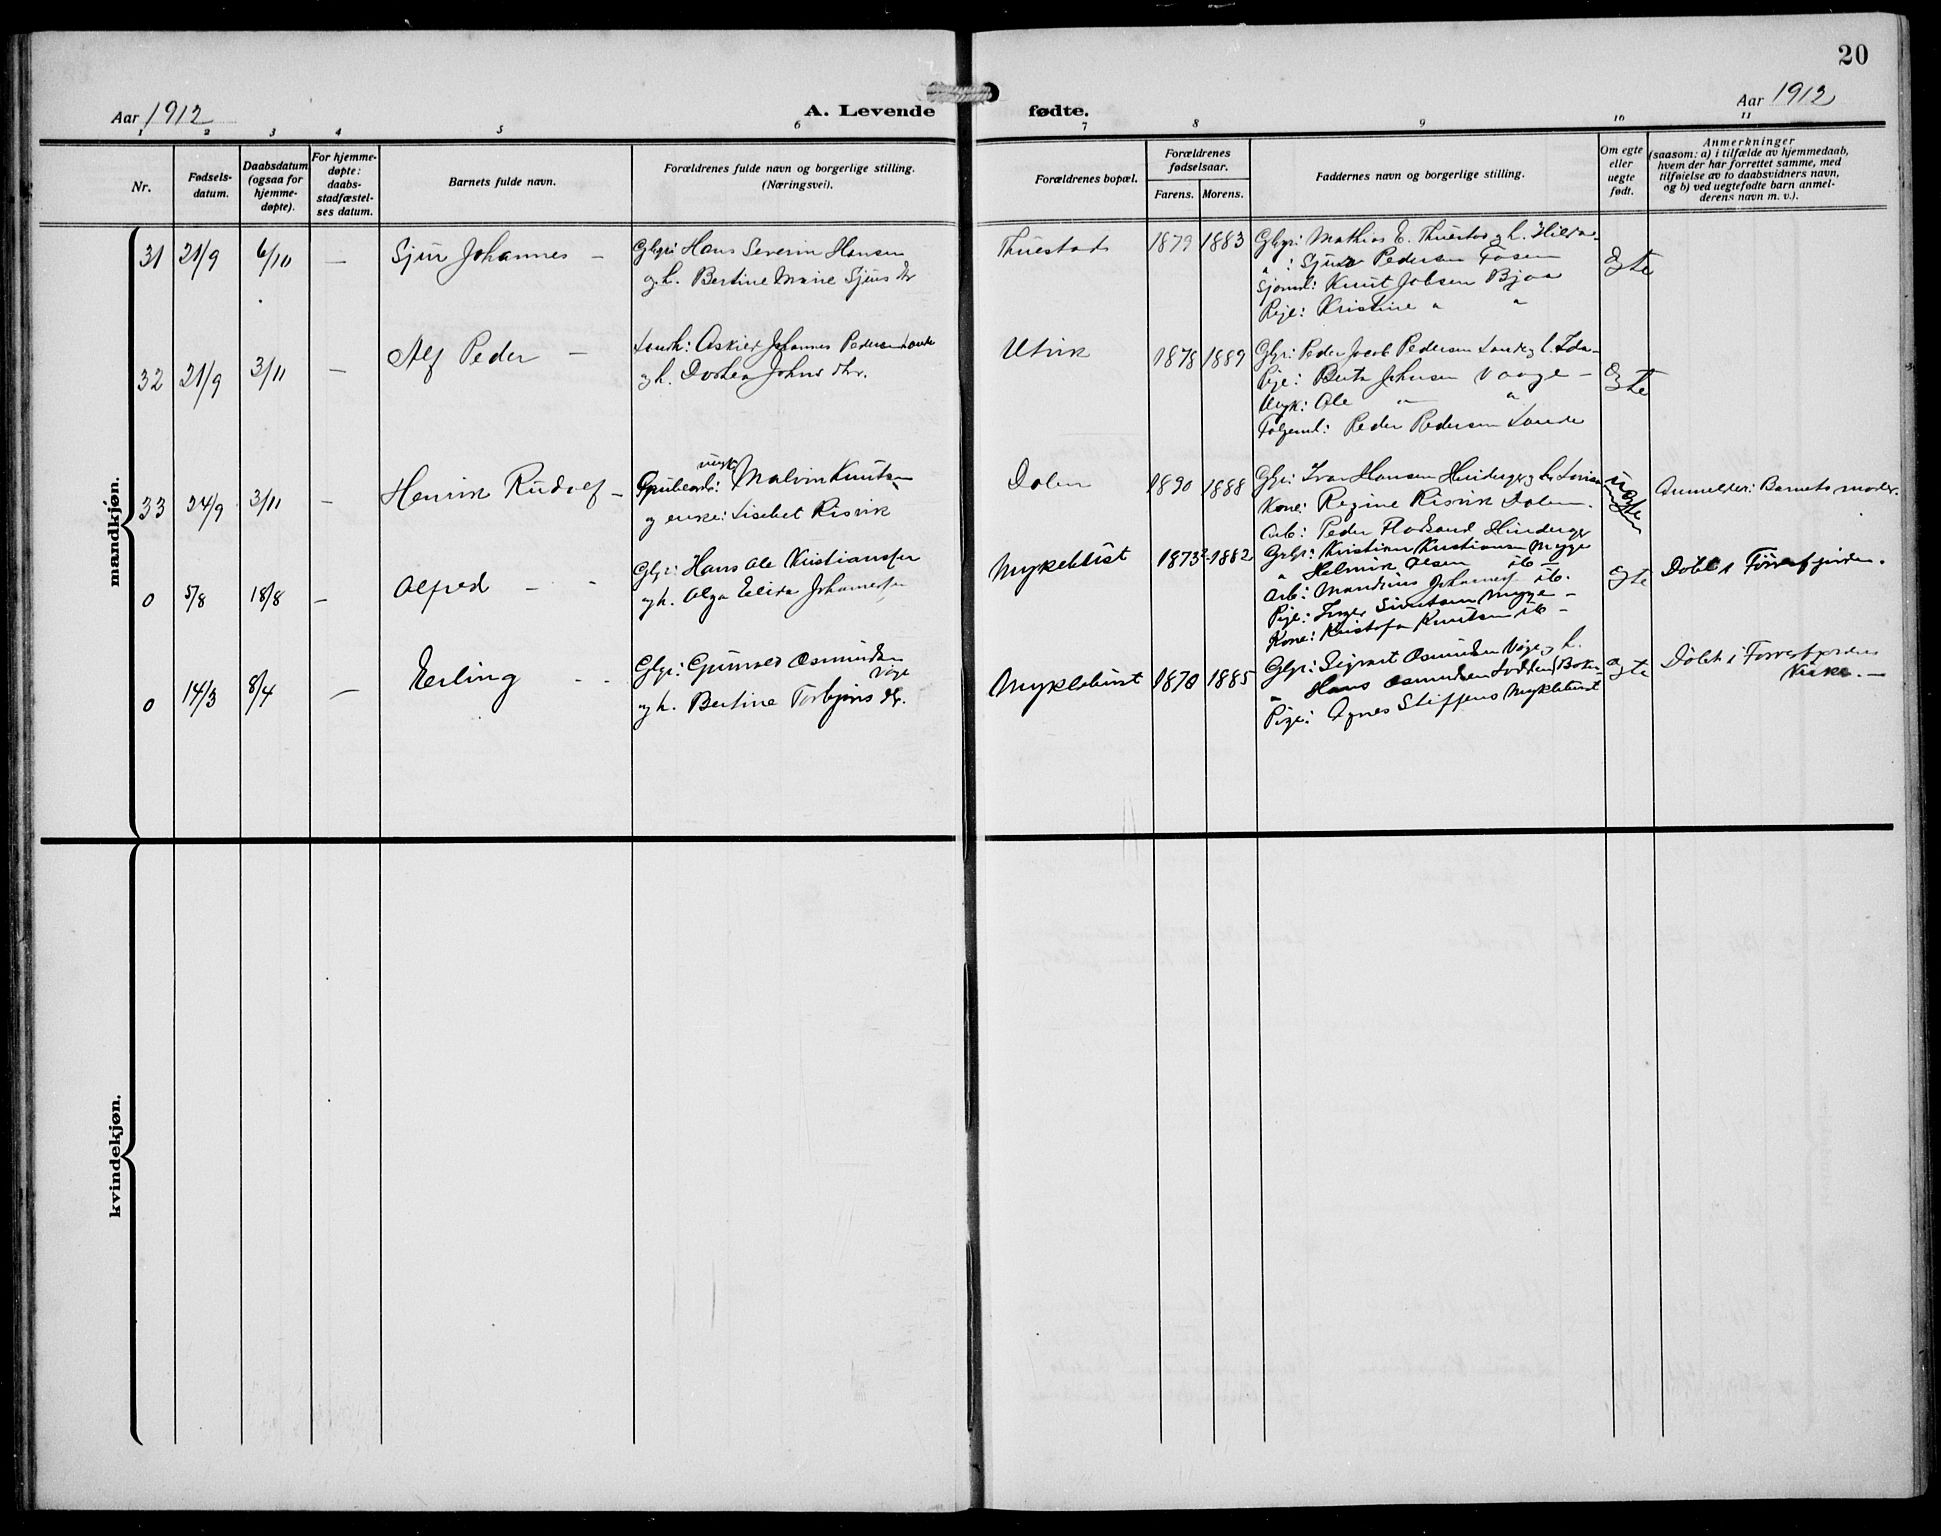 20
Aar 1912
A. Levende fødte.
Aar 1912
1 2 3 4 5 6 7 8 9 10 11
Nr.
Fødsels-
datum.
Daabsdatum
(ogsaa for
hjemme-
døpte).
For hjemme-
døpte:
daabs-
stadfæstel-
ses datum.
Barnets fulde navn.
Forældrenes fulde navn og borgerlige stilling.
(Næringsvei).
Forældrenes bopæl.
Forældrenes
fødselsaar.
Farens. Morens.
Faddernes navn og borgerlige stilling.
Om egte
eller
uegte
født.
Anmerkninger
(saasom: a) i tilfælde av hjemmedaab,
hvem der har forrettet samme, med
tilføielse av to daabsvidners navn,
og b) ved uegtefødte barn anmel-
derens navn m. v.).
mandkjøn.
31 21/9 6/10 — Sjur Johannes —
Gbgr: Hans Severin Hansen
og h. Bertine Marie Sjurs dr
Thuestad 1879 1883
Gbgr: Mathias E. Thuestad og h. Hilda
" : Sjur Pedersen Fosen
Sjømd: Knut Jobsen Bjoa
Pige: Kristine " "
Egte
32 21/9 3/11 — Alf Peder —
Landh: Askild Johannes Pedersen Lande
og h. Dorthea Johns dtr.
Utvik 1878 1889
Gbgr: Peder Jacob Pedersen Lande og h. Ida
Pige: Berta Johnsen Vaage —
Ungk: Ole " "
Følgemd: Peder Pedersen Lande
Egte
33 24/9 3/11 — Henrik Rudolf —
ungk
Grubearb: Malvin Knutsen
og enke: Lisebet Risvik
Dolen 1890 1888
Gbgr: Ivar Hansen Hinderager og h. Lovise
Kone: Regine Risvik Dolen.
Arb: Peder Flodsand Hinderager
uegte
Anmelder: Barnets moder.
0 5/8 18/8 — Alfred — -
Gbgr: Hans Ole Kristiansen
og h. Olga Elida Johannesen
Myklebust 1873 1882
Grbr: Kristian Kristiansen Mygge
" Helmik Olsen ib —
Arb: Mandius Johannes ib.
Pige: Inger Sivertsen Mygge —
Kone: Kristofa Knutsen ib —
Egte
Døbt i Førresfjorden.
0 14/3 8/4 — Erling - -
Gbgr: Gunvald Osmundsen
Våge
og h. Bertine Torbjørns dr.
Myklebust 1878 1885
Gbgr: Sigvart Osmundsen Våge og h.
" Hans Osmundsen Lodden Bokn
Pige: Agnes Steffens Myklebust
egte
Døbt i Førresfjorden
Kirke. —
kvindekjøn.